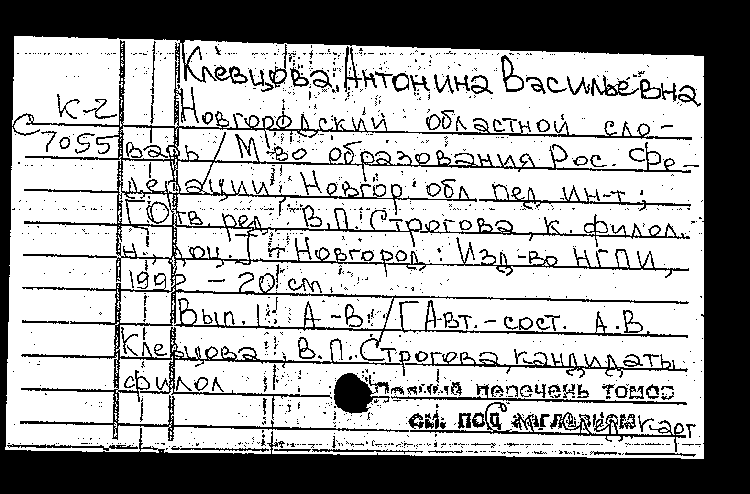 Клевцова, Антонина Васильевна
К-2
С
7055
Новгородский областной сло-
варь / М-во образования Рос. Фе-
дерации, Новгор. обл. пед. ин-т;
[Отв. ред. В.П. Строгова, к. филол.
н., доц.] - Новгород: Изд-во НГПИ,
1992 - 20 см.
Вып. 1: А-В / [Авт.-сост. А.В.
Клевцова, В.П. Строгова, кандидаты
филол
Полный перечень томов
см. под заглавием карт